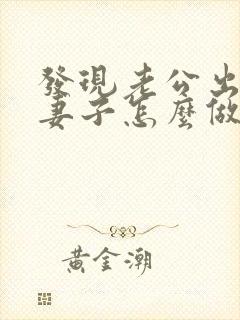 發現老公出
妻子怎麼做
黃金潮